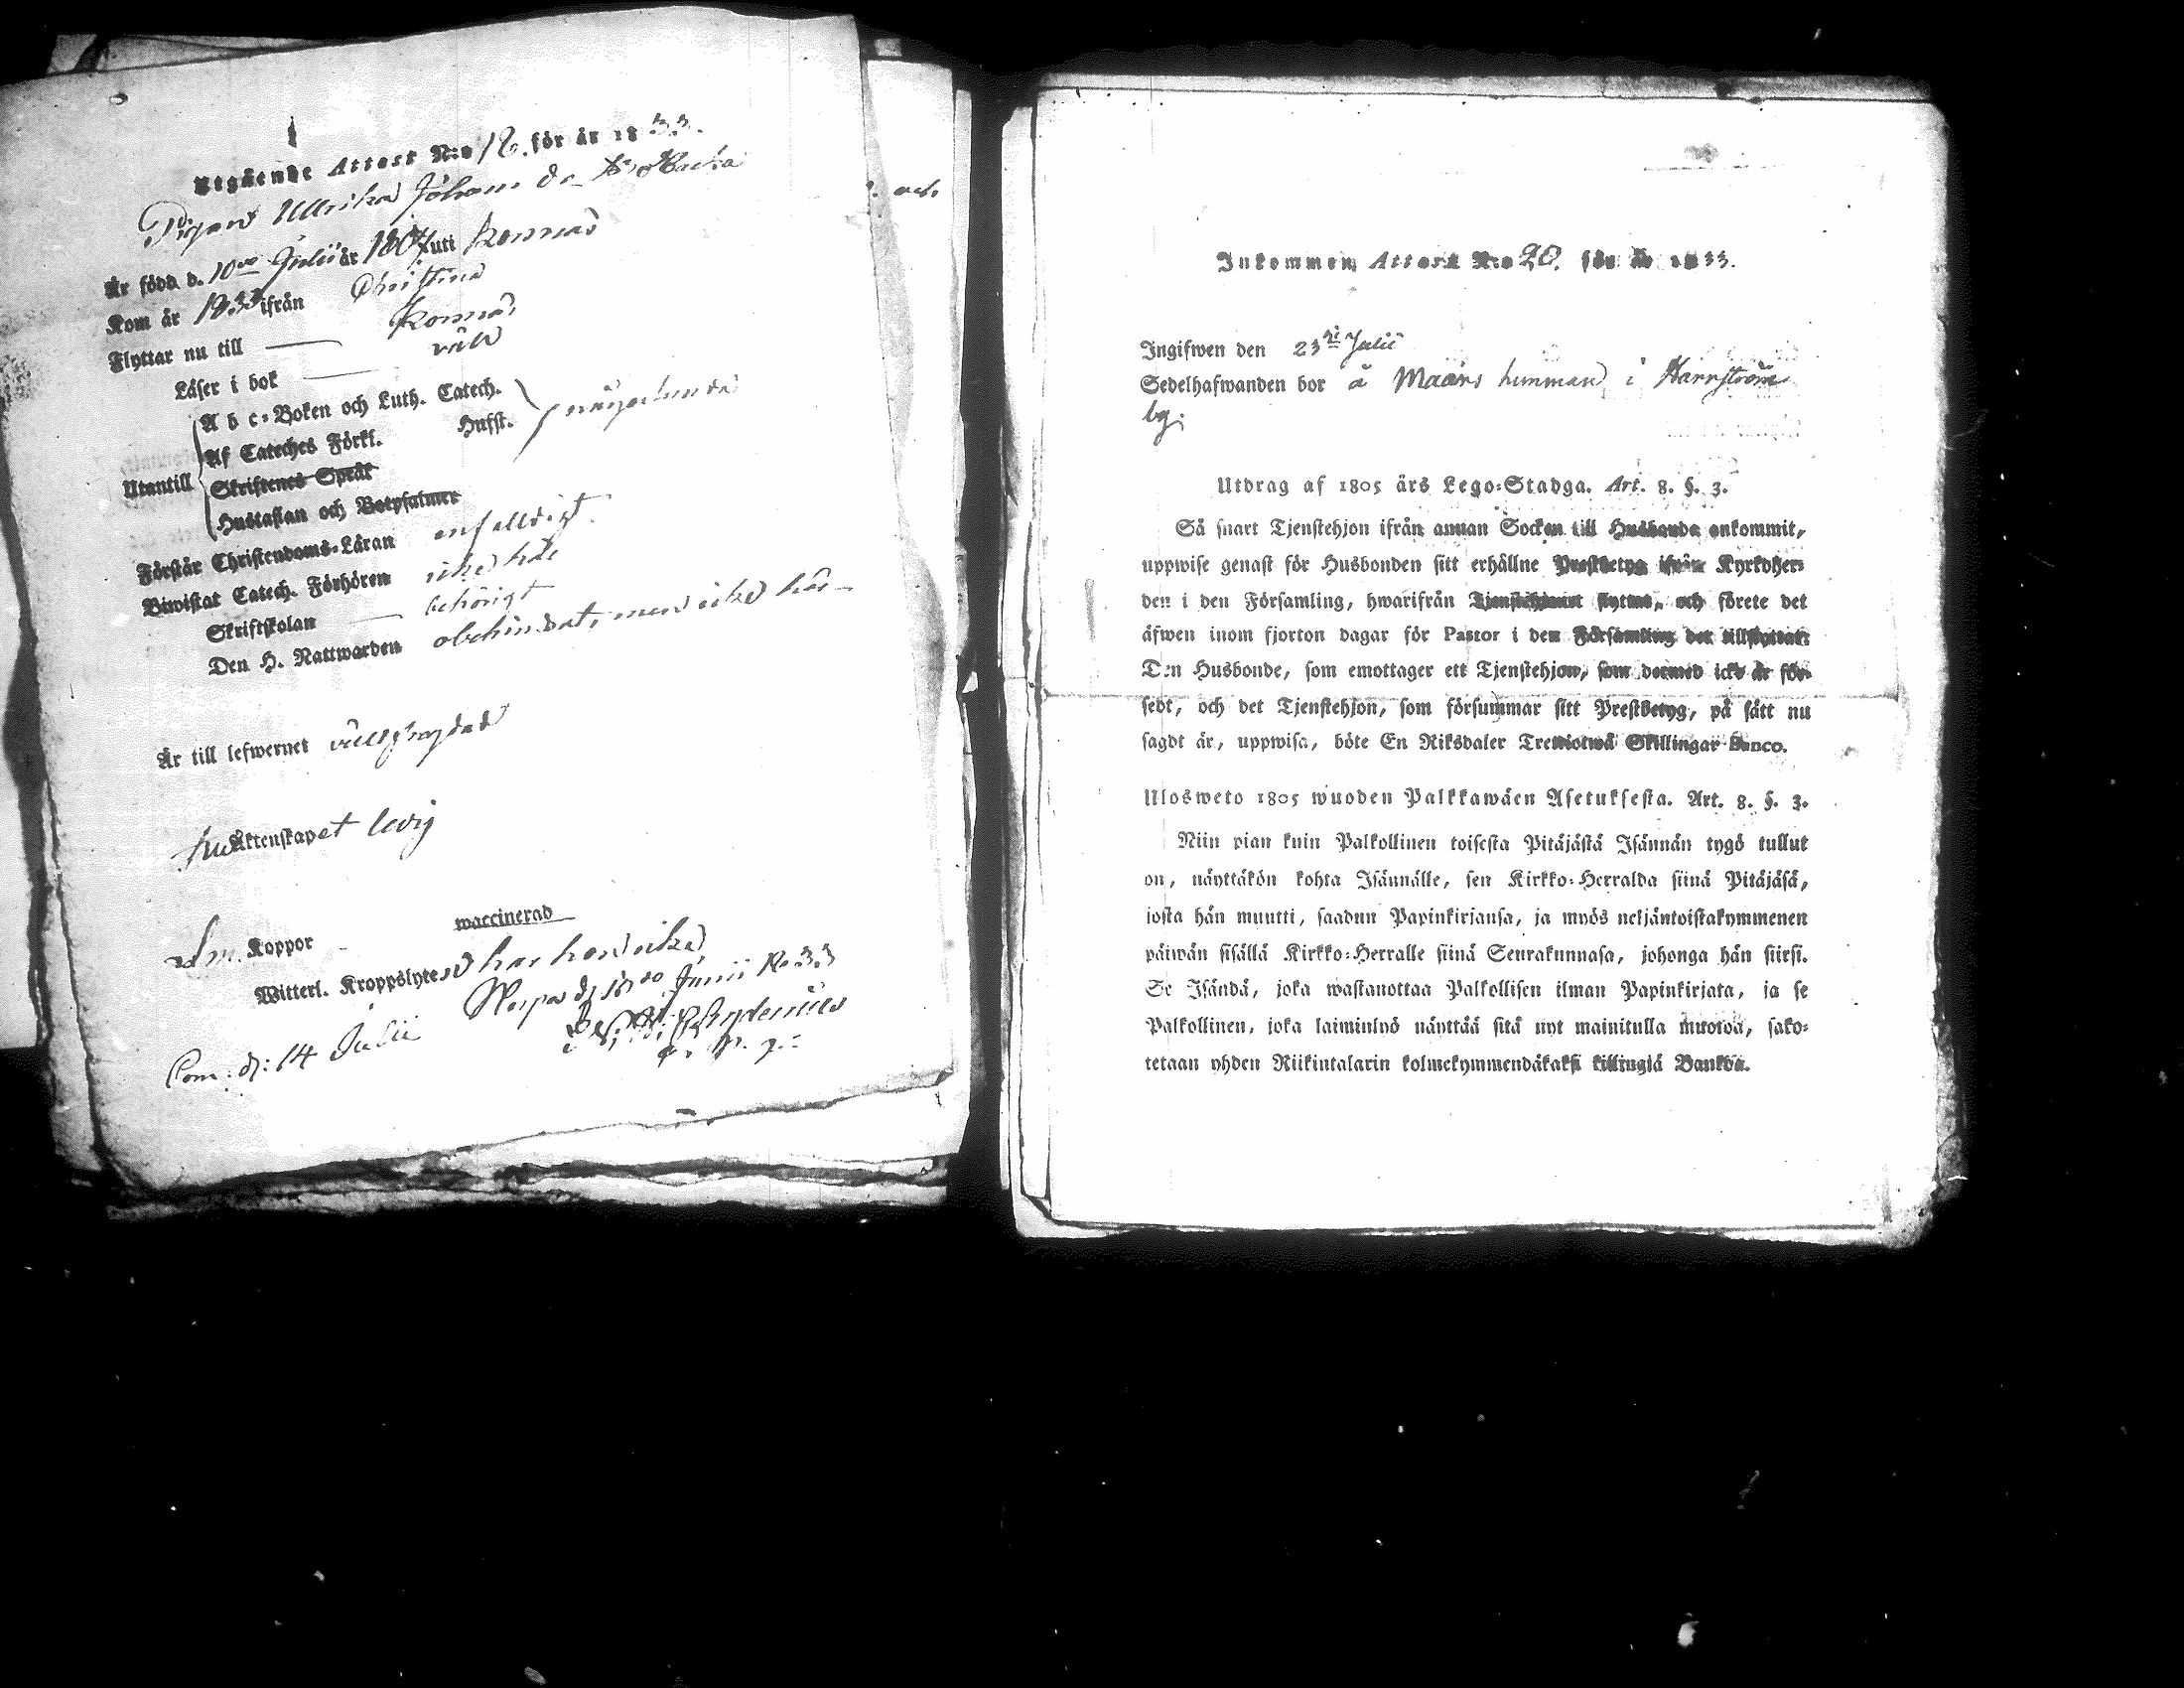 Utgående Attest N:o 18. för år 1833.
Pigan Ullrika Johans dr
Är född d. 10de Julii år 1807 uti Korsnäs
Kom år 1833 ifrån Christina
Flyttar nu till Korsnäs
Läser i bok väl
Utantill
A b c-Boken och Luth. Catech.
Af Cateches Förkl. Husst.
någorlunda
Skriftenes Språk
Hustaflan och Botpsalmer
Förstår Christendoms-Läran enfalldigt.
Biwistat Catech. Förhören icke här
Skriftskolan behörigt
Den H. Nattwarden obehindrat, men icke här
Är till lefwernet wällfrägdad
Äktenskapet ledig
Koppor waccinerad
Witterl. Kroppslyten har hon icke
d. 18de Junii 1833
Com. d: 14 Julii
Inkommen Attest N:o 20. för år 1833.
Ingifwen den 23di Julii
Sedelhafwanden bor å Maärs hemman i Harrström
by.
Utdrag af 1805 års Lego-Stadga. Art. 8. §. 3.
Så snart Tjenstehjon ifrån annan Socken till Husbonde ankommit,
uppwise genast för Husbonden sitt erhållne Prestbetyg ifrån Kyrkoher-
den i den Församling, hwarifrån Tjenstehjonet flyttat, och förete det
äfwen inom fjorton dagar för Pastor i den Församling det tillflyttat.
Den Husbonde, som emottager ett Tjenstehjon, som dermed icke är för-
sedt, och det Tjenstehjon, som försummar sitt Prestbetyg, på sätt nu
sagdt är, uppwisa, böte En Riksdaler Trettiotwå Skillingar Banco.
Ulosweto 1805 wuoden Palkkawäen Asetuksesta. Art. 8. §. 3.
Niin pian kuin Palkollinen toisesta Pitäjästä Isännän tygö tullut
on, näyttäkön kohta Isännälle, sen Kirkko-Herralda siinä Pitäjäsä,
josta hän muutti, saadun Papinkirjansa, ja myös neljäntoistakymmenen
päiwän sisällä Kirkko-Herralle siinä Seurakunnasa, johonga hän siirsi.
Se Isändä, joka wastanottaa Palkollisen ilman Papinkirjata, ja se
Palkollinen, joka laiminlyö näyttää sitä nyt mainitulla muotoa, sako-
tetaan yhden Riikintalarin kolmekymmendäkaksi killingiä Bankoa.